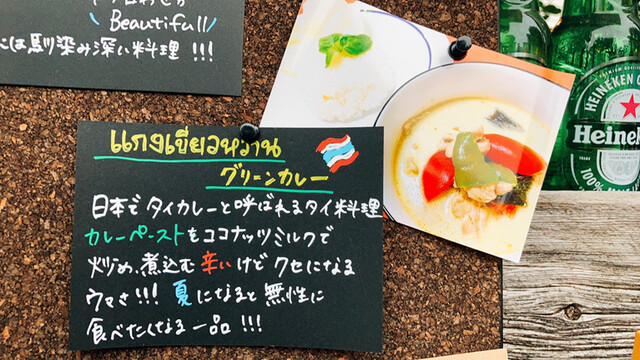 Beautiful!
には馴染み深い料理 !!!
แกงเขียวหวาน
グリーンカレー
日本でタイカレーと呼ばれるタイ料理
カレーペーストをココナッツミルクで
炒め、煮込む 辛いけど クセになる
ウマさ!!! 夏になると無性に
食べたくなる一品 !!!
HEINEKEN
Heine
100% M